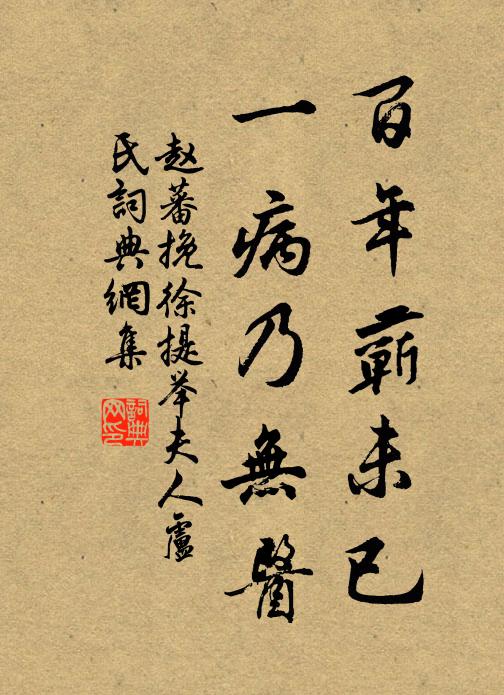 百年蘄未已
一病乃無醫
赵蕃挽徐提举夫人盧
氏詞典網集
詞典
网印